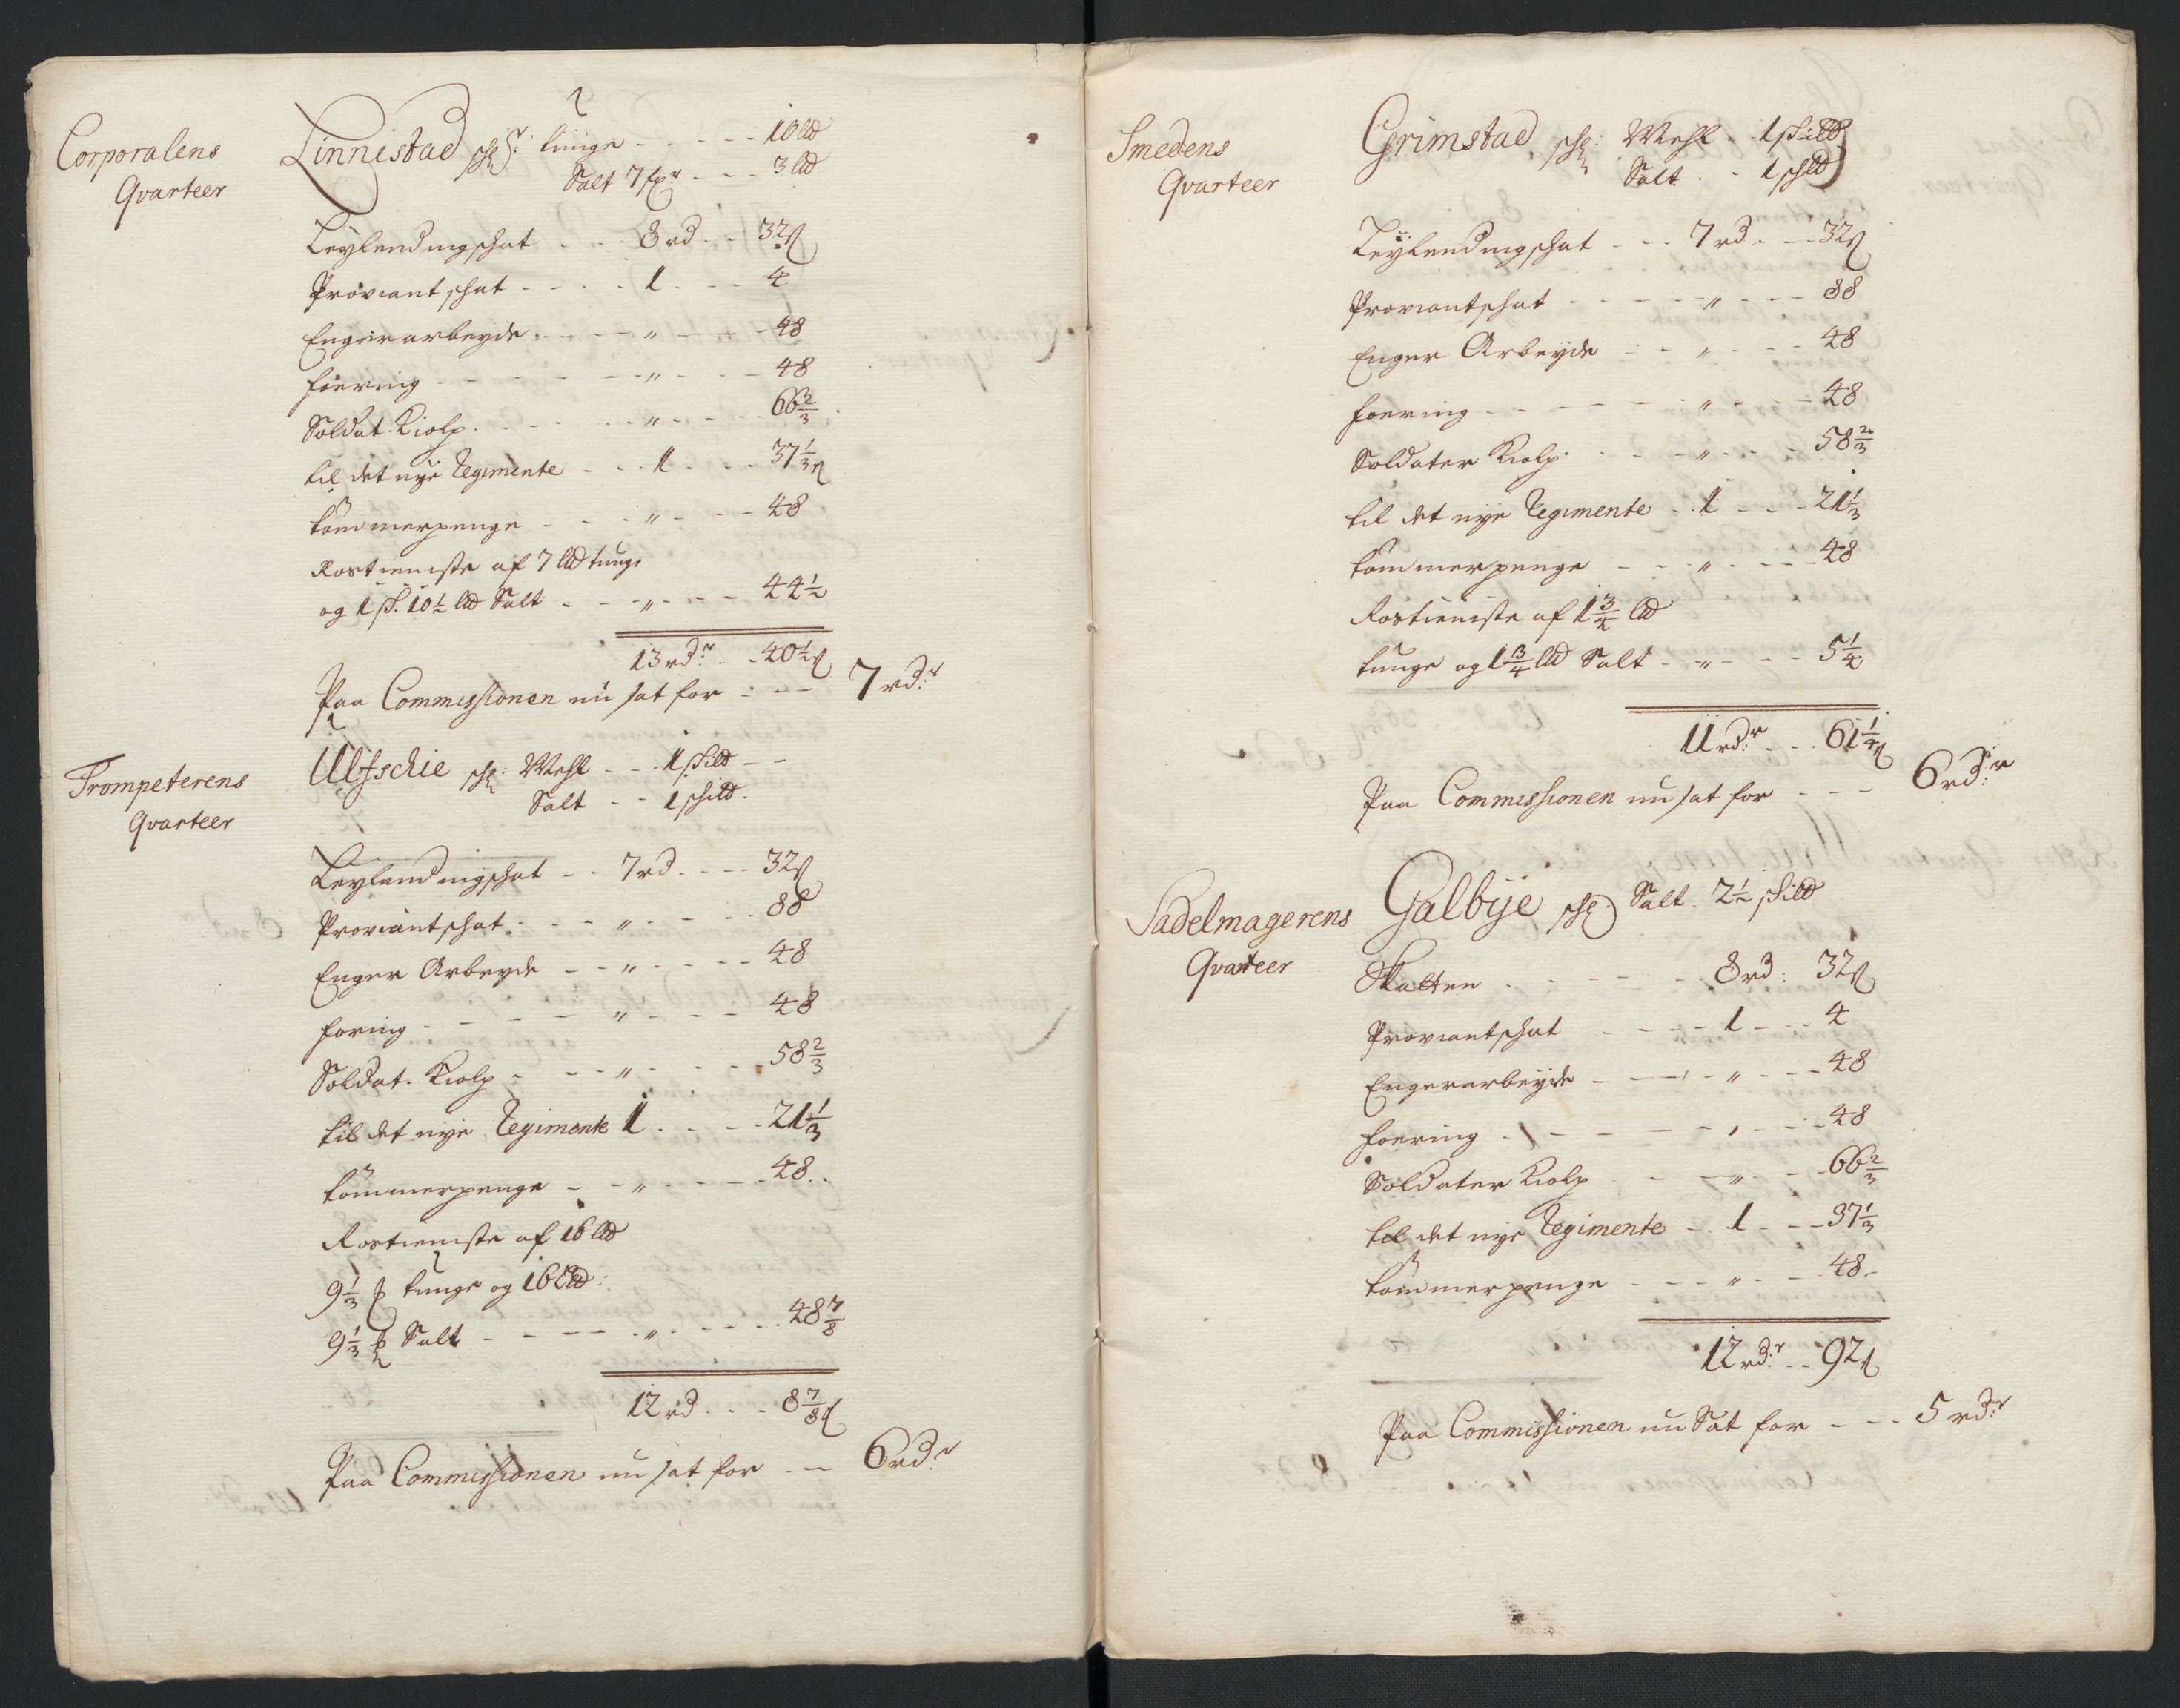 Corporalens
Qvarteer
Linnestad sch: tunge - - - - 10 lld
Salt 7 sch - - - 3 lld
Leylendingschat - - - 8 rd - - 32 ß
Proviant schat - - - - 1 - - - 4
Enger arbeyde - - - - " - - - 48
foering - - - - - - " - - - 48
Soldat Kiolp. - - - - " - - - 66 2/3
til det nye Regimente - - - 1 - - - 37 1/3 ß
tømmerpenge - - - " - - - 48
Rostieniste af 7 lld tunge
og 1 s. 10 1/2 lld Salt - - - " - - - 44 1/2
13 rdr - - 40 1/2 ß
Paa Commissionen nu sat for - - - 7 rdr
Trompeterens
Qvarteer
Ulfschie sch: Mehl - - 1 schild - -
Salt - - 1 schild.
Leylendingschat - - 7 rd - - - 32 ß
Proviantschat - - - - " - - - 88
Enger Arbeyde - - " - - - - 48
foring - - - - - " - - - - 48
Soldat. Kiolp - - - " - - - - 58 2/3
til det nye Regimente 1 - - - - 21 1/3
tømmerpenge - - " - - - - 48
Rostieniste af 16 lld
9 1/3 tunge og 16 lld:
9 1/3 Salt - - - - - " - - - - 48 7/8
12 rd - - - 8 7/8 ß
Paa Commissionen nu sat for - - 6 rdr
Smedens
Qvarteer
Grimstad sch: Mehl - 1 schild
Salt - - 1 schld
Leylendingschat - - - 7 rd. - - 32 ß
Proviantschat - - - - - " - - - 88
Enger Arbeyde - - " - - - 48
foering - - - - - - " - - - 48
Soldater Kiolp. - - - - " - - - 58 2/3
til det nye Regimente - 1 - - - 21 1/3
tømmerpenge - - - " - - - - 48
Rostieniste af 1 3/4 lld
tunge og 1 3/4 lld Salt - - " - - - 5 1/4
11 rdr - - - 61 1/4 ß
Paa Commissionen nu sat for - - - 6 rdr
Sadelmagerens
Qvarteer
Galbye sch. Salt 2 1/2 schild
Skatten - - - - - - 8 rd: 32 ß
Proviantschat - - - - 1 - - - 4
Engerarbeyde - - - - " - - - 48
foering - - - - - - " - - - 48
Soldater Kiolp - - - " - - - 66 2/3
til det nye Regimente - - 1 - - - 37 1/3
tømmerpenge - - - - " - - - 48 -
12 rdr - - 92 ß
Paa Commissionen nu Sat for - - - 5 rdr